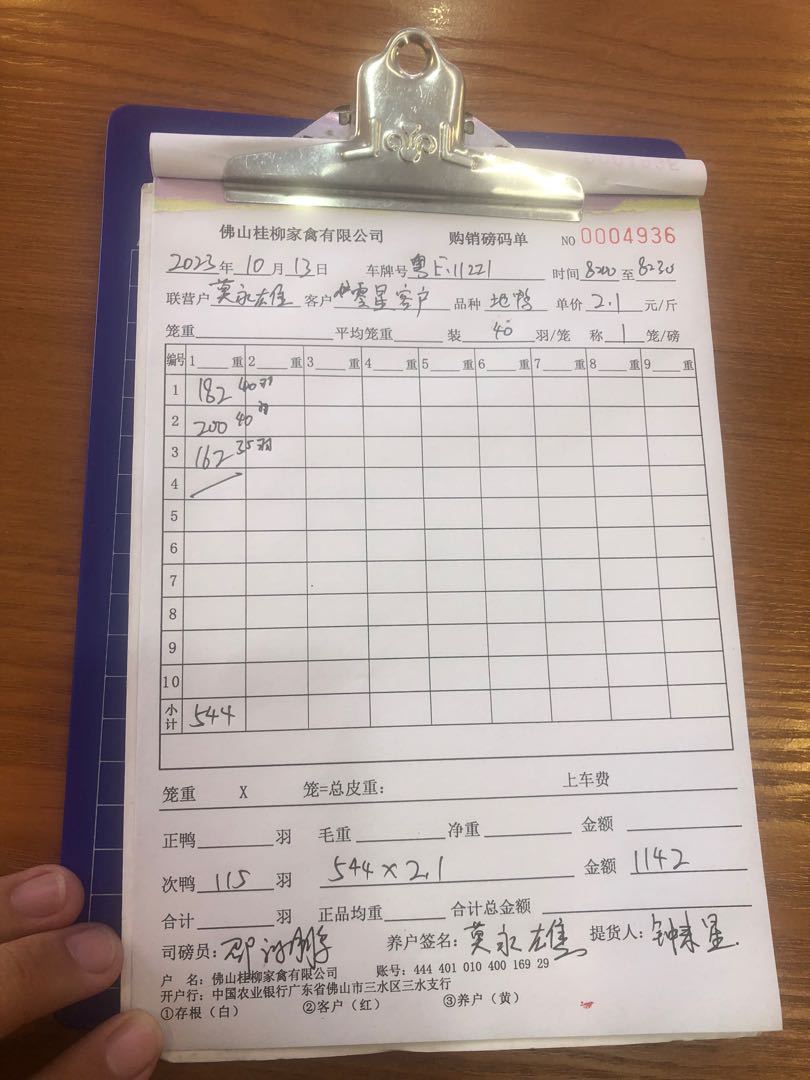 佛山桂柳家禽有限公司 购销磅码单 NO 0004936
2023年 10月 13日 车牌号 粤E·11221 时间 8200 至 8230
联营户 莫永雄 客户 零星客户 品种 地鸭 单价 2.1 元/斤
笼重 平均笼重 装 40 羽/笼 称 1 笼/磅
编号 1 重 2 重 3 重 4 重 5 重 6 重 7 重 8 重 9 重
1 182 40羽
2 200 40羽
3 162 35羽
4
5
6
7
8
9
10
小计 544
笼重 X 笼=总皮重: 上车费
正鸭 羽 毛重 净重 金额
次鸭 115 羽 544×2.1 金额 1142
合计 羽 正品均重 合计总金额
司磅员: 养户签名: 莫永雄 提货人: 钟来星
户 名: 佛山桂柳家禽有限公司 账号: 444 401 010 400 169 29
开户行: 中国农业银行广东省佛山市三水区三水支行
①存根(白) ②客户(红) ③养户(黄)